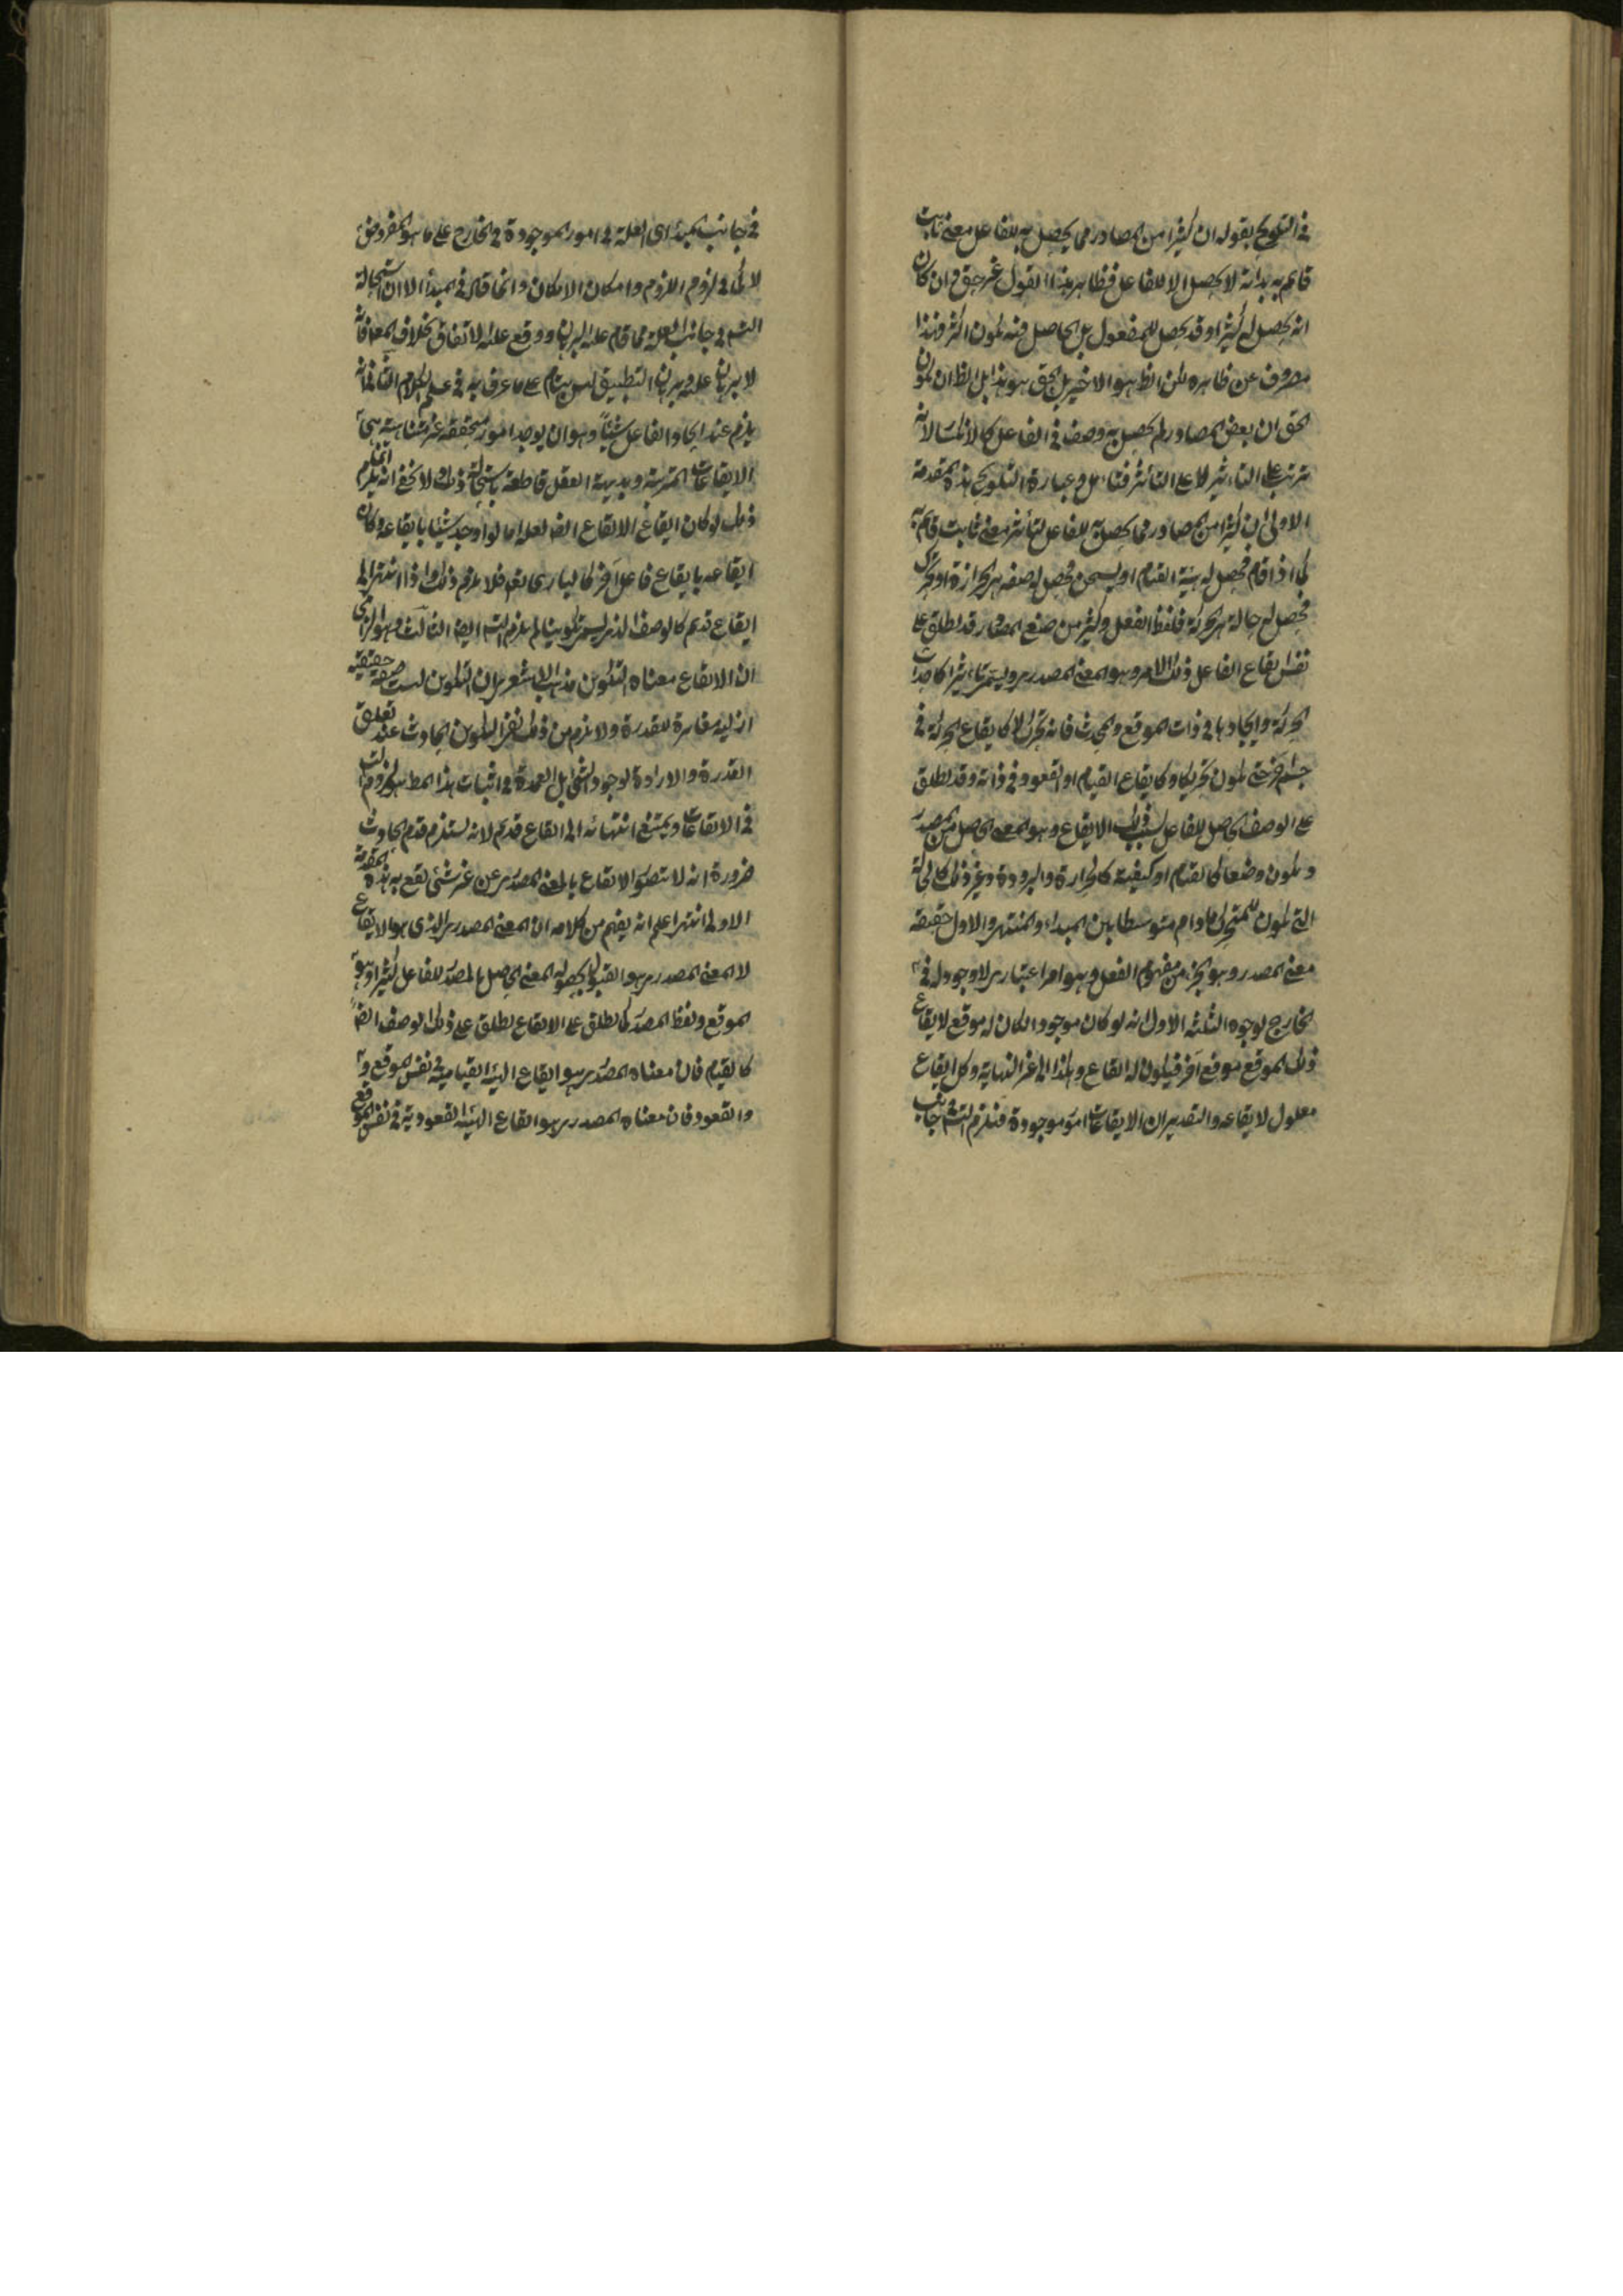 في التلويح بقوله ان كثيرا من المصادر مما يحصل به للفاعل معنى ثابت
قائم به بداته لا يحصل الا للفاعل فظاهر هذا القول غير حق وان كان
انه يحصل له كثيرا وقد يحصل للمفعول بل الحاصل فيه يكون اكثر فهذا
مصروف عن ظاهره لكن الظ هو الاخير بل الحق هو هذا بل الظ ان يكون
الحق ان بعض المصادر لم يحصل به وصف في الفاعل كالامساك لانه
ترتب على التاثير لا على التأثر فتامل وعبارة التلويح هذه المقدمة
الاولى ان كثيرا من المصادر مما يحصل به للفاعل معنى ثابت قائم به
كما اذا قام فحصل له هيئة القيام او تسخن فحصل له صفة هي الحرارة او تحرك
فحصل له حالة هي الحركة فلفظ الفعل وكثير من صيغ المصادر قد يطلق على
نفس ايقاع الفاعل ذلك الامر وهو المعنى المصدري ويسمى تاثيرا كاحداث
الحركة وايجادها في ذات الموقع والمحدث فانه تحرك لا كايقاع الحركة في
جسم اخر حتى يكون تحريكا وكايقاع القيام او القعود في ذاته وقد يطلق
على الوصف الحاصل للفاعل بسبب ذلك الايقاع وهو المعنى الحاصل من المصدر
ويكون وضعا كالقيام او كيفية كالحرارة والبرودة وغير ذلك كالحالة
التي تكون للمتحرك ما دام متوسطا بين المبداء والمنتهى والاول حقيقة
معنى المصدر وهو الجزء من مفهوم الفعل وهو امر اعتباري لا وجود له في
الخارج لوجوه الثلثه الاول انه لو كان موجودا لكان له موقع لايقاع
ذلك الموقع موقع آخر فيكون له ايقاع وهكذا الى غير النهاية وكل ايقاع
معلول لايقاعه والتقدير ان الايقاعات امور موجودة فيلزم التسم في جانب
في جانب المبدا اى العلة في امور الموجودة في الخارج على ما هو المفروض
لا كما في لزوم اللزوم وامكان الامكان وانما قال في المبدأ الا ان استحالة
التسم في جانب العلة مما قام عليه البرهان ووقع عليه الاتفاق بخلاف المعلول فانه
لا برهان عليه وبرهان التطبيق ليس بتام على ما عرف به في علم الكلام الثاني انه
يلزم عند ايجاد الفاعل شيئاً وهو ان يوجد امور متحققة غير متناهية هي
الايقاعات المترتبة وبديهة العقل قاطعة باستحالة ذلك ولا يخفى انه انما يلزم
ذلك لو كان ايقاع الايقاع ايضا لعله اما لو اوجد شيئا بايقاعه وكان
ايقاعه بايقاع فاعل آخر كالباري تعم فلا يلزم ذلك واذا انتهى الى
ايقاع قديم كالوصف الذي يسمى تكوينا لم يلزم التسم ايضا الثالث وهو الزامى
ان الايقاع معناه التكوين مذهب الاشعرى ان التكوين ليست صفة حقيقية
ازلية مغايرة للقدرة ولا يلزم من ذلك نفي التكوين الحادث عند تعلق
القدرة والارادة لوجود الشئ بل العمدة في اثبات هذا المط هو لزوم التسم
في الايقاعات ويمتنع انتهائه الى ايقاع قديم لانه يستلزم قدم الحادث
ضرورة انه لا يتصور الايقاع بالمعنى المصدرى عن غير شئ يقع به هذه المقدمة
الاولى انتهى اعلم انه يفهم من كلامه ان المعنى المصدري الذي هو الايقاع
لا المعنى المصدري هو القبول يحصل به المعنى الحاصل بالمصدر للفاعل كثيرا وهو
الموقع ولفظ المصدر كما يطلق على الايقاع يطلق على ذلك الوصف ايضاً
كالقيام فان معناه المصدري هو ايقاع الهيئة القيامية في نفس الموقع و
والقعود فان معناه المصدري هو ايقاع الهيئة القعودية في نفس الموقع